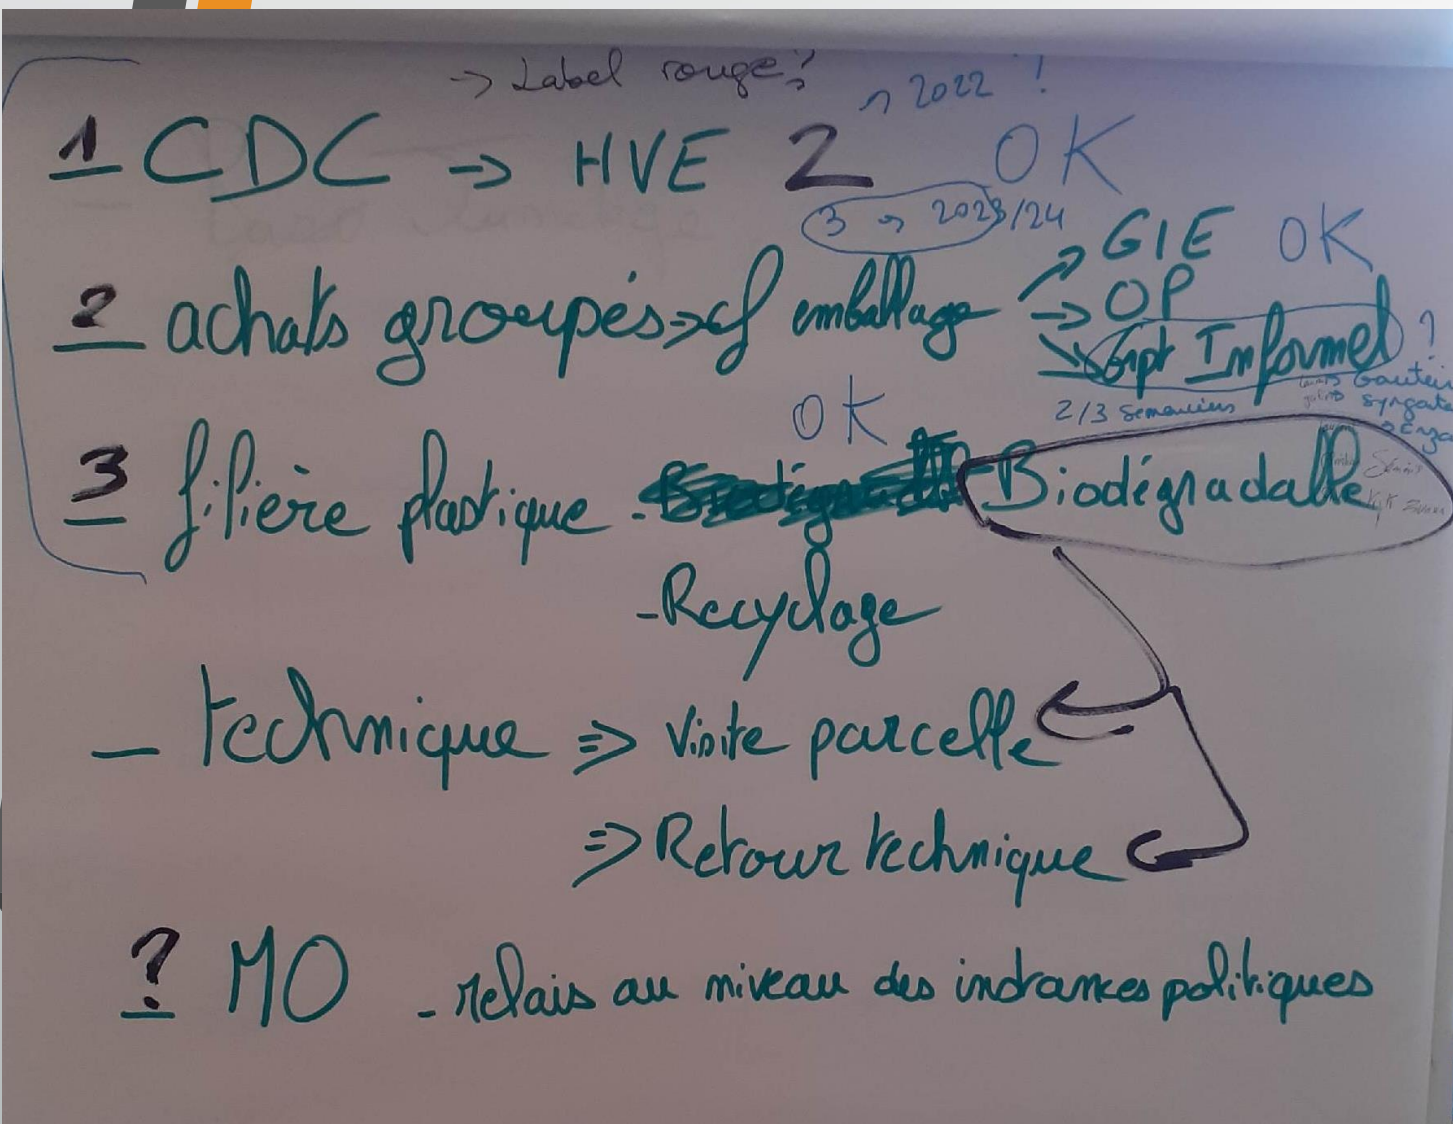 → Label rouge?
→ 2022 !
1 CDC → HVE 2 OK
3 → 2023/24
2 achats groupés → cf emballage → GIE OK
→ OP
→ Gpt Informel ?
2/3 semenciers Gautier
Syngenta
OK
3 filière plastique - Biodégradable
- Recyclage
- technique => Visite parcelle
=> Retour technique
? MO - relais au niveau des instances politiques